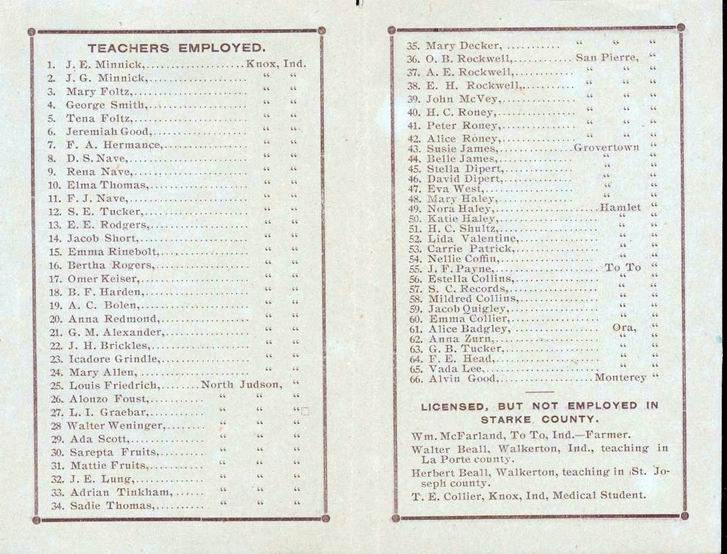 TEACHERS EMPLOYED.
1. J. E. Minnick,......................Knox, Ind.
2. J. G. Minnick,...................... “ “
3. Mary Foltz,...................... “ “
4. George Smith,...................... “ “
5. Tena Foltz,...................... “ “
6. Jeremiah Good,...................... “ “
7. F. A. Hermance,...................... “ “
8. D. S. Nave,...................... “ “
9. Rena Nave,...................... “ “
10. Elma Thomas,...................... “ “
11. F. J. Nave,...................... “ “
12. S. E. Tucker,...................... “ “
13. E. E. Rodgers,...................... “ “
14. Jacob Short,...................... “ “
15. Emma Rinebolt,...................... “ “
16. Bertha Rogers,...................... “ “
17. Omer Keiser,...................... “ “
18. B. F. Harden,...................... “ “
19. A. C. Bolen,...................... “ “
20. Anna Redmond,...................... “ “
21. G. M. Alexander,...................... “ “
22. J. H. Brickles,...................... “ “
23. Icadore Grindle,...................... “ “
24. Mary Allen,...................... “ “
25. Louis Friedrich,.......North Judson, “
26. Alonzo Foust,............ “ “ “
27. L. I. Graebar,............ “ “ “
28 Walter Weninger,............ “ “ “
29. Ada Scott,............ “ “ “
30. Sarepta Fruits,............ “ “ “
31. Mattie Fruits,............ “ “ “
32. J. E. Lung,............ “ “ “
33. Adrian Tinkham,...... “ “ “
34. Sadie Thomas,......... “ “ “
35. Mary Decker, ........... “ “ “
36. O. B. Rockwell,........... San Pierre, “
37. A. E. Rockwell,........... “ “ “
38. E. H. Rockwell,........... “ “ “
39. John McVey,........... “ “ “
40. H. C. Roney,........... “ “ “
41. Peter Roney,........... “ “ “
42. Alice Roney,........... “ “ “
43. Susie James,...............Grovertown “
44. Belle James,............... “ “
45. Stella Dipert,............... “ “
46. David Dipert,............... “ “
47. Eva West,............... “ “
48. Mary Haley,............... “ “
49. Nora Haley,...................Hamlet “
50. Katie Haley,................... “ “
51. H. C. Shultz,................... “ “
52. Lida Valentine,................... “ “
53. Carrie Patrick,................... “ “
54. Nellie Coffin,................... “ “
55. J. F. Payne,................... To To “
56. Estella Collins,................... “ “
57. S. C. Records,................... “ “
58. Mildred Collins,................... “ “
59. Jacob Quigley,................... “ “
60. Emma Collier,................... “ “
61. Alice Badgley, ................... Ora, “
62. Anna Zurn,................... “ “
63. G. B. Tucker,................... “ “
64. F. E. Head,................... “ “
65. Vada Lee,................... “ “
66. Alvin Good,..................Monterey “
LICENSED, BUT NOT EMPLOYED IN
STARKE COUNTY.
Wm. McFarland, To To, Ind.—Farmer.
Walter Beall, Walkerton, Ind., teaching in
La Porte county.
Herbert Beall, Walkerton, teaching in St. Jo-
seph county.
T. E. Collier, Knox, Ind, Medical Student.